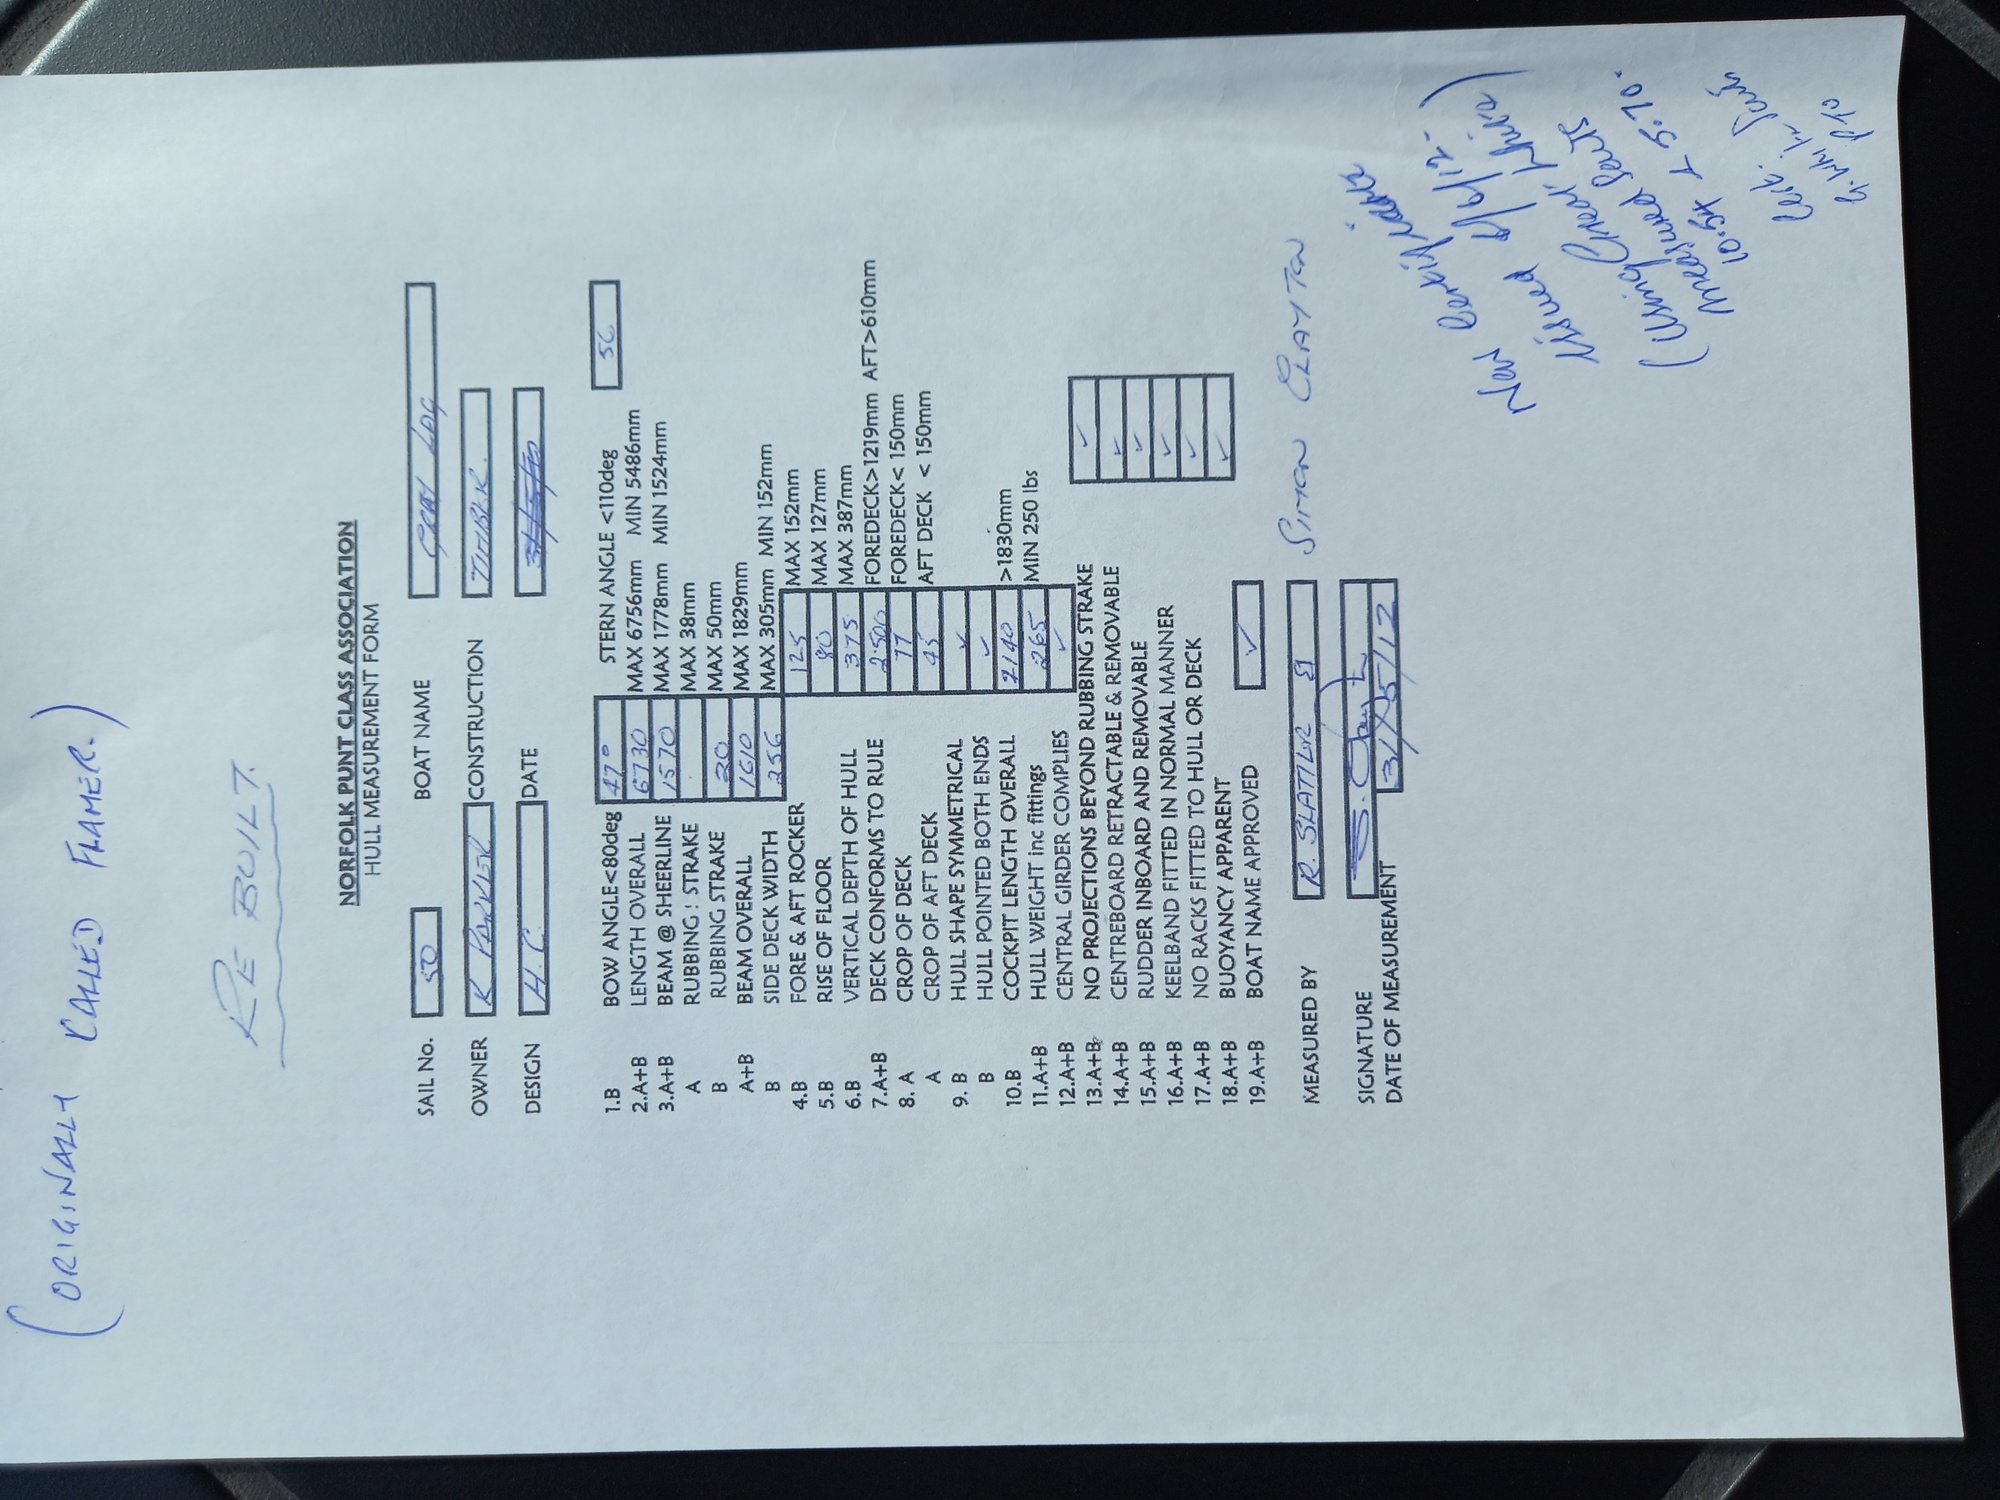 (ORIGINALLY CALLED FLAMER.)
RE BUILT.
NORFOLK PUNT CLASS ASSOCIATION
HULL MEASUREMENT FORM
SAIL No. 50 BOAT NAME
OWNER K PARKER CONSTRUCTION TIMBER.
DESIGN H.C. DATE 31/5/
1.B BOW ANGLE<80deg 47° STERN ANGLE <110deg 56
2.A+B LENGTH OVERALL 6730 MAX 6756mm MIN 5486mm
3.A+B BEAM @ SHEERLINE 1570 MAX 1778mm MIN 1524mm
A RUBBING : STRAKE MAX 38mm
B RUBBING STRAKE 20 MAX 50mm
A+B BEAM OVERALL 1610 MAX 1829mm
B SIDE DECK WIDTH 256 MAX 305mm MIN 152mm
4.B FORE & AFT ROCKER 125 MAX 152mm
5.B RISE OF FLOOR 80 MAX 127mm
6.B VERTICAL DEPTH OF HULL 375 MAX 387mm
7.A+B DECK CONFORMS TO RULE 2.500 FOREDECK>1219mm AFT>610mm
8. A CROP OF DECK 77 FOREDECK< 150mm
A CROP OF AFT DECK 45 AFT DECK < 150mm
9. B HULL SHAPE SYMMETRICAL ✓
B HULL POINTED BOTH ENDS ✓
10.B COCKPIT LENGTH OVERALL 2140 >1830mm
11.A+B HULL WEIGHT inc fittings 265 MIN 250 lbs
12.A+B CENTRAL GIRDER COMPLIES ✓
13.A+B NO PROJECTIONS BEYOND RUBBING STRAKE ✓
14.A+B CENTREBOARD RETRACTABLE & REMOVABLE ✓
15.A+B RUDDER INBOARD AND REMOVABLE ✓
16.A+B KEELBAND FITTED IN NORMAL MANNER ✓
17.A+B NO RACKS FITTED TO HULL OR DECK ✓
18.A+B BUOYANCY APPARENT ✓
19.A+B BOAT NAME APPROVED ✓
MEASURED BY R. SLATTER & SIMON CLAYTON
SIGNATURE
DATE OF MEASUREMENT 31/5/12
New
issued
(Using
measured
10.54 & 5.70.
PTO